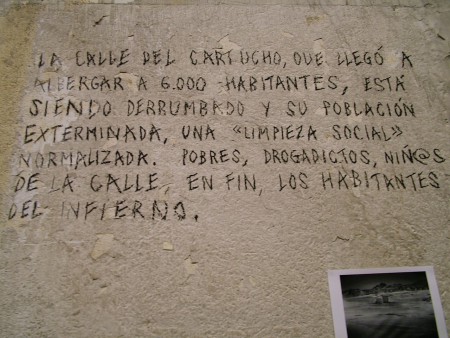 LA CALLE DEL CARTUCHO, QUE LLEGÓ A
ALBERGAR A 6.000 HABITANTES, ESTÁ
SIENDO DERRUMBADO Y SU POBLACIÓN
EXTERMINADA, UNA «LIMPIEZA SOCIAL»
NORMALIZADA. POBRES, DROGADICTOS, NIÑ@S
DE LA CALLE, EN FIN, LOS HABITANTES
DEL INFIERNO.